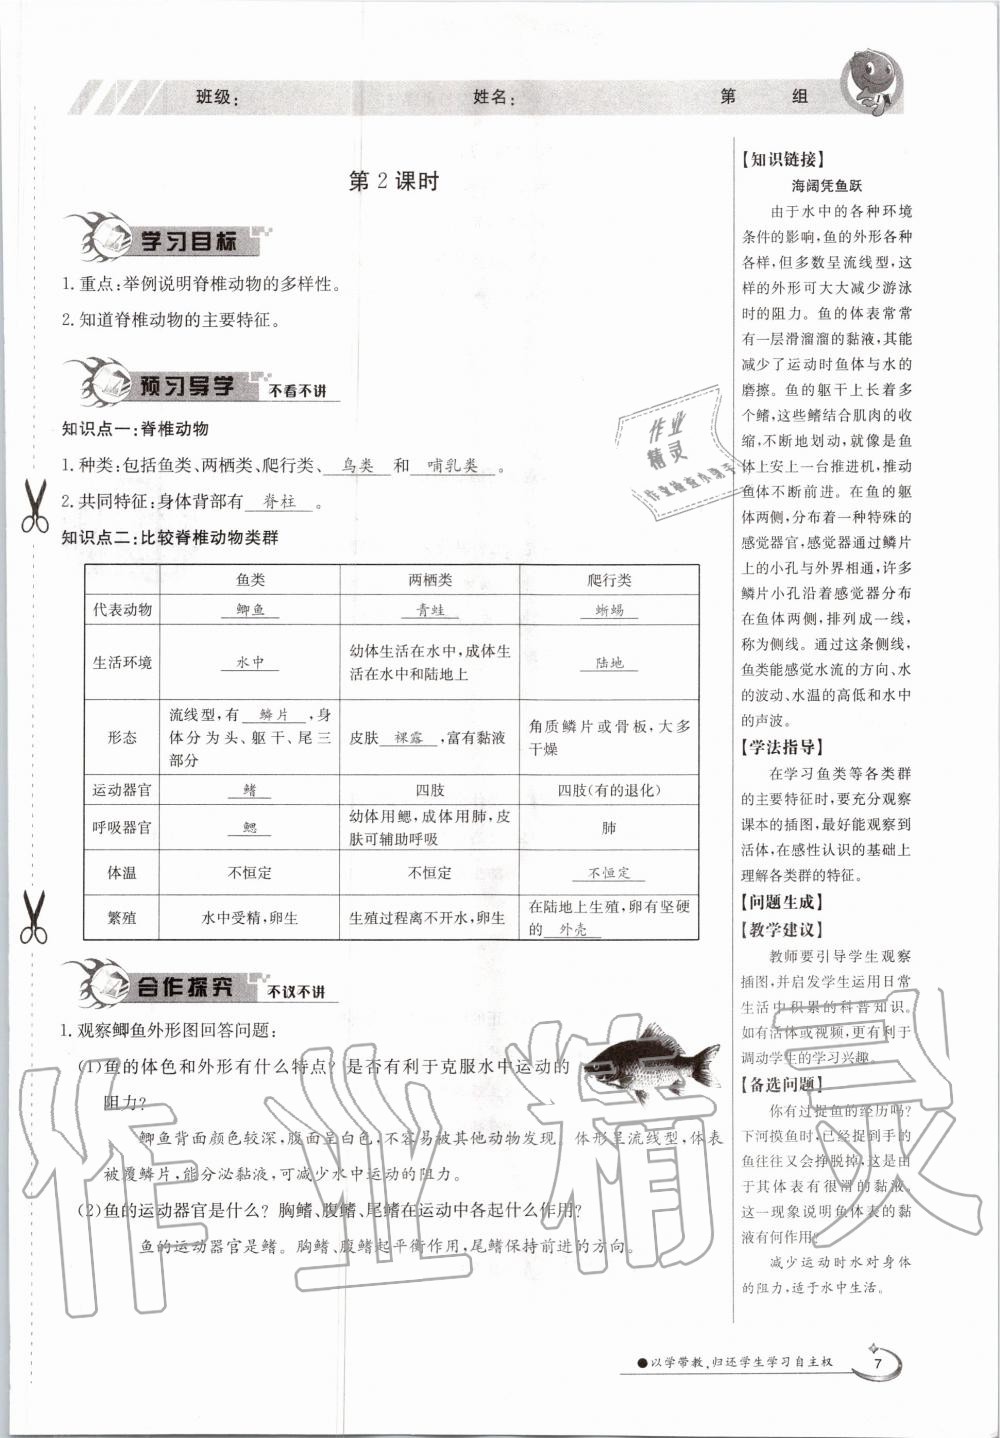 班级:
姓名:
第 组
第2课时
学习目标
1.重点:举例说明脊椎动物的多样性。
2.知道脊椎动物的主要特征。
预习导学 不看不讲
知识点一:脊椎动物
1.种类:包括鱼类、两栖类、爬行类、鸟类和哺乳类。
2.共同特征:身体背部有脊柱。
知识点二:比较脊椎动物类群
鱼类 两栖类 爬行类
代表动物 鲫鱼 青蛙 蜥蜴
生活环境 水中 幼体生活在水中,成体生
活在水中和陆地上 陆地
形态 流线型,有鳞片,身
体分为头、躯干、尾三
部分 皮肤裸露,富有黏液 角质鳞片或骨板,大多
干燥
运动器官 鳍 四肢 四肢(有的退化)
呼吸器官 鳃 幼体用鳃,成体用肺,皮
肤可辅助呼吸 肺
体温 不恒定 不恒定 不恒定
繁殖 水中受精,卵生 生殖过程离不开水,卵生 在陆地上生殖,卵有坚硬
的外壳
合作探究 不议不讲
1.观察鲫鱼外形图回答问题:
(1)鱼的体色和外形有什么特点?是否有利于克服水中运动的
阻力?
鲫鱼背面颜色较深,腹面呈白色,不容易被其他动物发现。体形呈流线型,体表
被覆鳞片,能分泌黏液,可减少水中运动的阻力。
(2)鱼的运动器官是什么?胸鳍、腹鳍、尾鳍在运动中各起什么作用?
鱼的运动器官是鳍。胸鳍、腹鳍起平衡作用,尾鳍保持前进的方向。
【知识链接】
海阔凭鱼跃
由于水中的各种环境
条件的影响,鱼的外形各种
各样,但多数呈流线型,这
样的外形可大大减少游泳
时的阻力。鱼的体表常常
有一层滑溜溜的黏液,其能
减少了运动时鱼体与水的
磨擦。鱼的躯干上长着多
个鳍,这些鳍结合肌肉的收
缩,不断地划动,就像是鱼
体上安上一台推进机,推动
鱼体不断前进。在鱼的躯
体两侧,分布着一种特殊的
感觉器官,感觉器通过鳞片
上的小孔与外界相通,许多
鳞片小孔沿着感觉器分布
在鱼体两侧,排列成一线,
称为侧线。通过这条侧线,
鱼类能感觉水流的方向、水
的波动、水温的高低和水中
的声波。
【学法指导】
在学习鱼类等各类群
的主要特征时,要充分观察
课本的插图,最好能观察到
活体,在感性认识的基础上
理解各类群的特征。
【问题生成】
【教学建议】
教师要引导学生观察
插图,并启发学生运用日常
生活中积累的科普知识。
如有活体或视频,更有利于
调动学生的学习兴趣。
【备选问题】
你有过捉鱼的经历吗?
下河摸鱼时,已经捉到手的
鱼往往又会挣脱掉,这是由
于其体表有很滑的黏液。
这一现象说明鱼体表的黏
液有何作用?
减少运动时水对身体
的阻力,适于水中生活。
●以学带教,归还学生学习自主权
7
作业精灵
作业
精灵